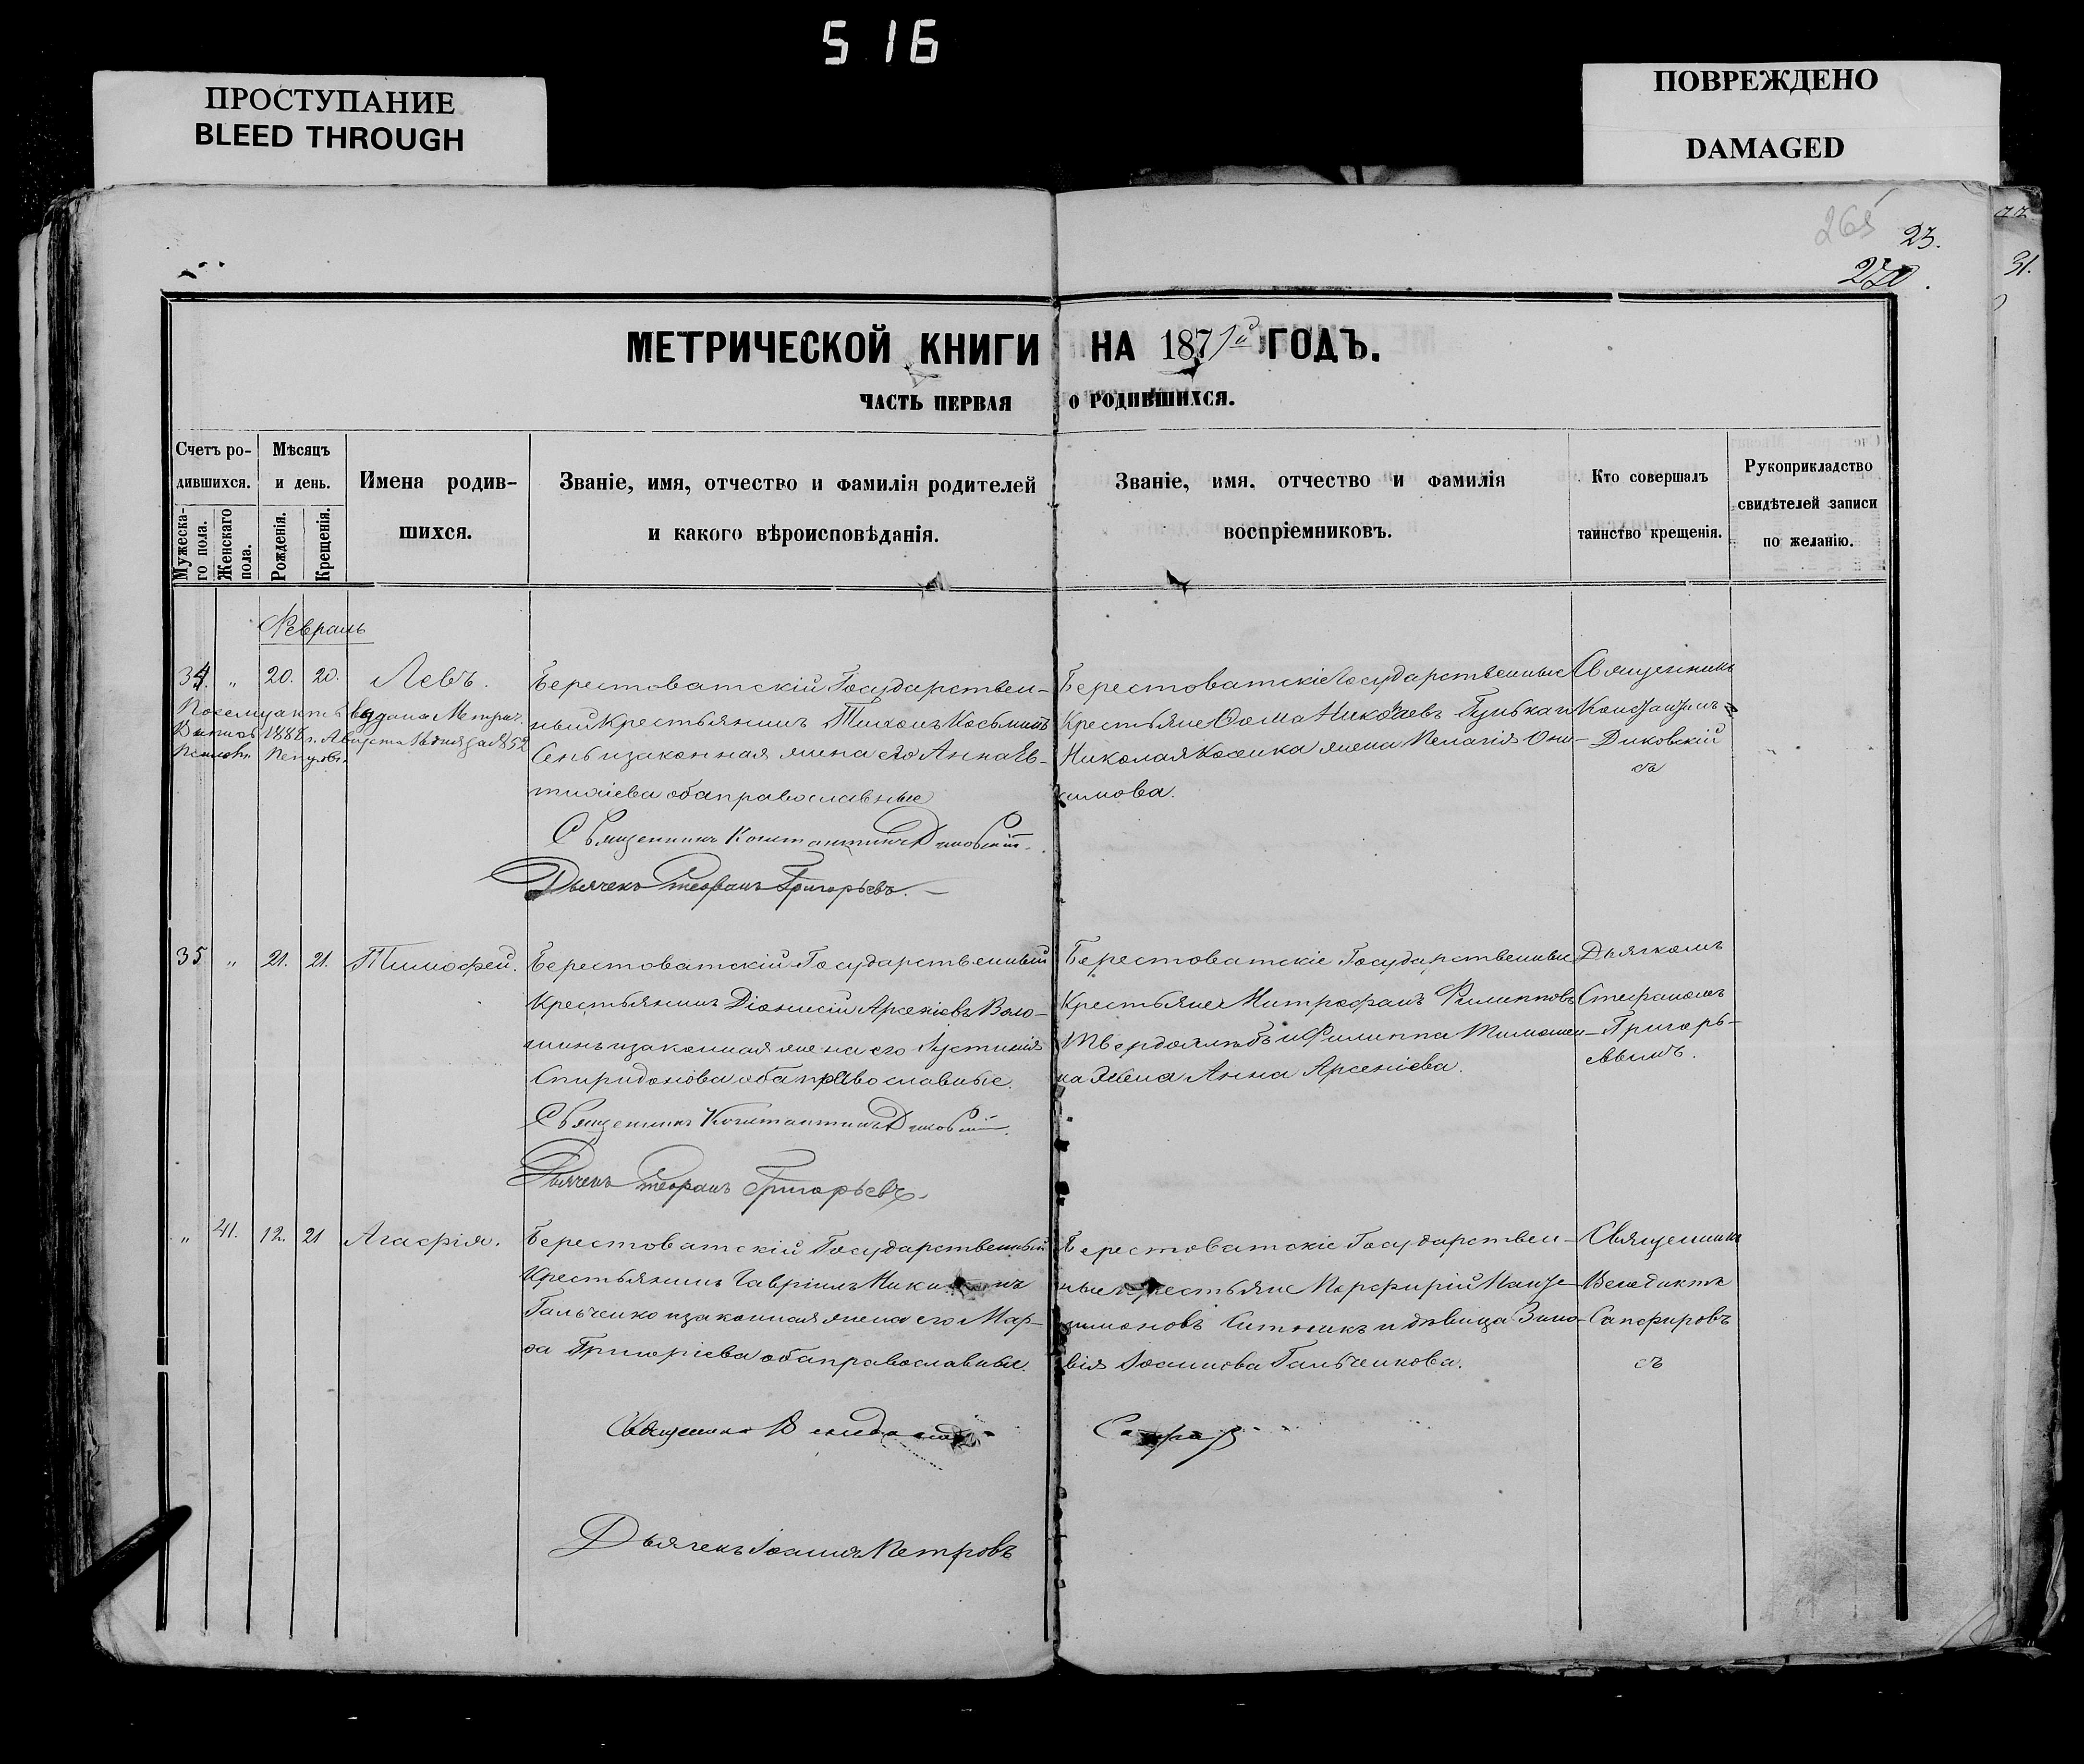 516
ПРОСТУПАНИЕ
BLEED THROUGH
ПОВРЕЖДЕНО
DAMAGED
265
23.
270.
31.
МЕТРИЧЕСКОЙ КНИГИ НА 1871й ГОДЪ.
ЧАСТЬ ПЕРВАЯ О РОДИВШИХСЯ.
Счетъ ро-
дившихся.
Мужеска-
го пола.
Женскаго
пола.
Мѣсяцъ
и день.
Рожденія.
Крещенія.
Имена родив-
шихся.
Званіе, имя, отчество и фамилія родителей
и какого вѣроисповѣданія.
Званіе, имя, отчество и фамилія
воспріемниковъ.
Кто совершалъ
таинство крещенія.
Рукоприкладство
свидѣтелей записи
по желанію.
Февраль
34. „ 20. 20. Левъ.
По сему акту выдана Метрич.
1888 г. Августа
Берестоватскій Государствен-
ный Крестьянинъ Тихонъ Косьминъ
Сень и законная жена его Анна Ев-
тихіева оба православные
Священникъ Константинъ Диковскій.
Дьячекъ Стефанъ Григорьевъ.
Берестоватскіе Государственные
Крестьяне Ѳома Николаевъ Губка и
Николая Косика жена Пелагія Они-
кимова.
Священникъ
Константинъ
Диковскій
съ
35 „ 21. 21. Тимофей.
Берестоватскій Государственный
Крестьянинъ Діонисій Арсеніевъ Воло-
шинъ и законная жена его Іустинія
Спиридонова оба православные.
Священникъ Константинъ Диковскій.
Дьячекъ Стефанъ Григорьевъ.
Берестоватскіе Государственные
Крестьяне Митрофанъ Филипповъ
Твердохлѣбъ и Филиппа Тимошен-
ка жена Анна Арсеніева.
Дьячкомъ
Стефаномъ
Григорь-
евымъ.
„ 41. 12. 21 Агафія.
Берестоватскій Государственный
Крестьянинъ Гавріилъ
Гальченко и законная жена его Мар-
ѳа Григоріева оба православные.
Священникъ
Дьячекъ Іоаннъ Петровъ
Берестоватскіе Государствен-
ные крестьяне Порфирій Панте-
лимоновъ Ситникъ и дѣвица Зино-
вія Іоаннова Гальченкова.
Священникъ
Венедиктъ
Сапфировъ
съ